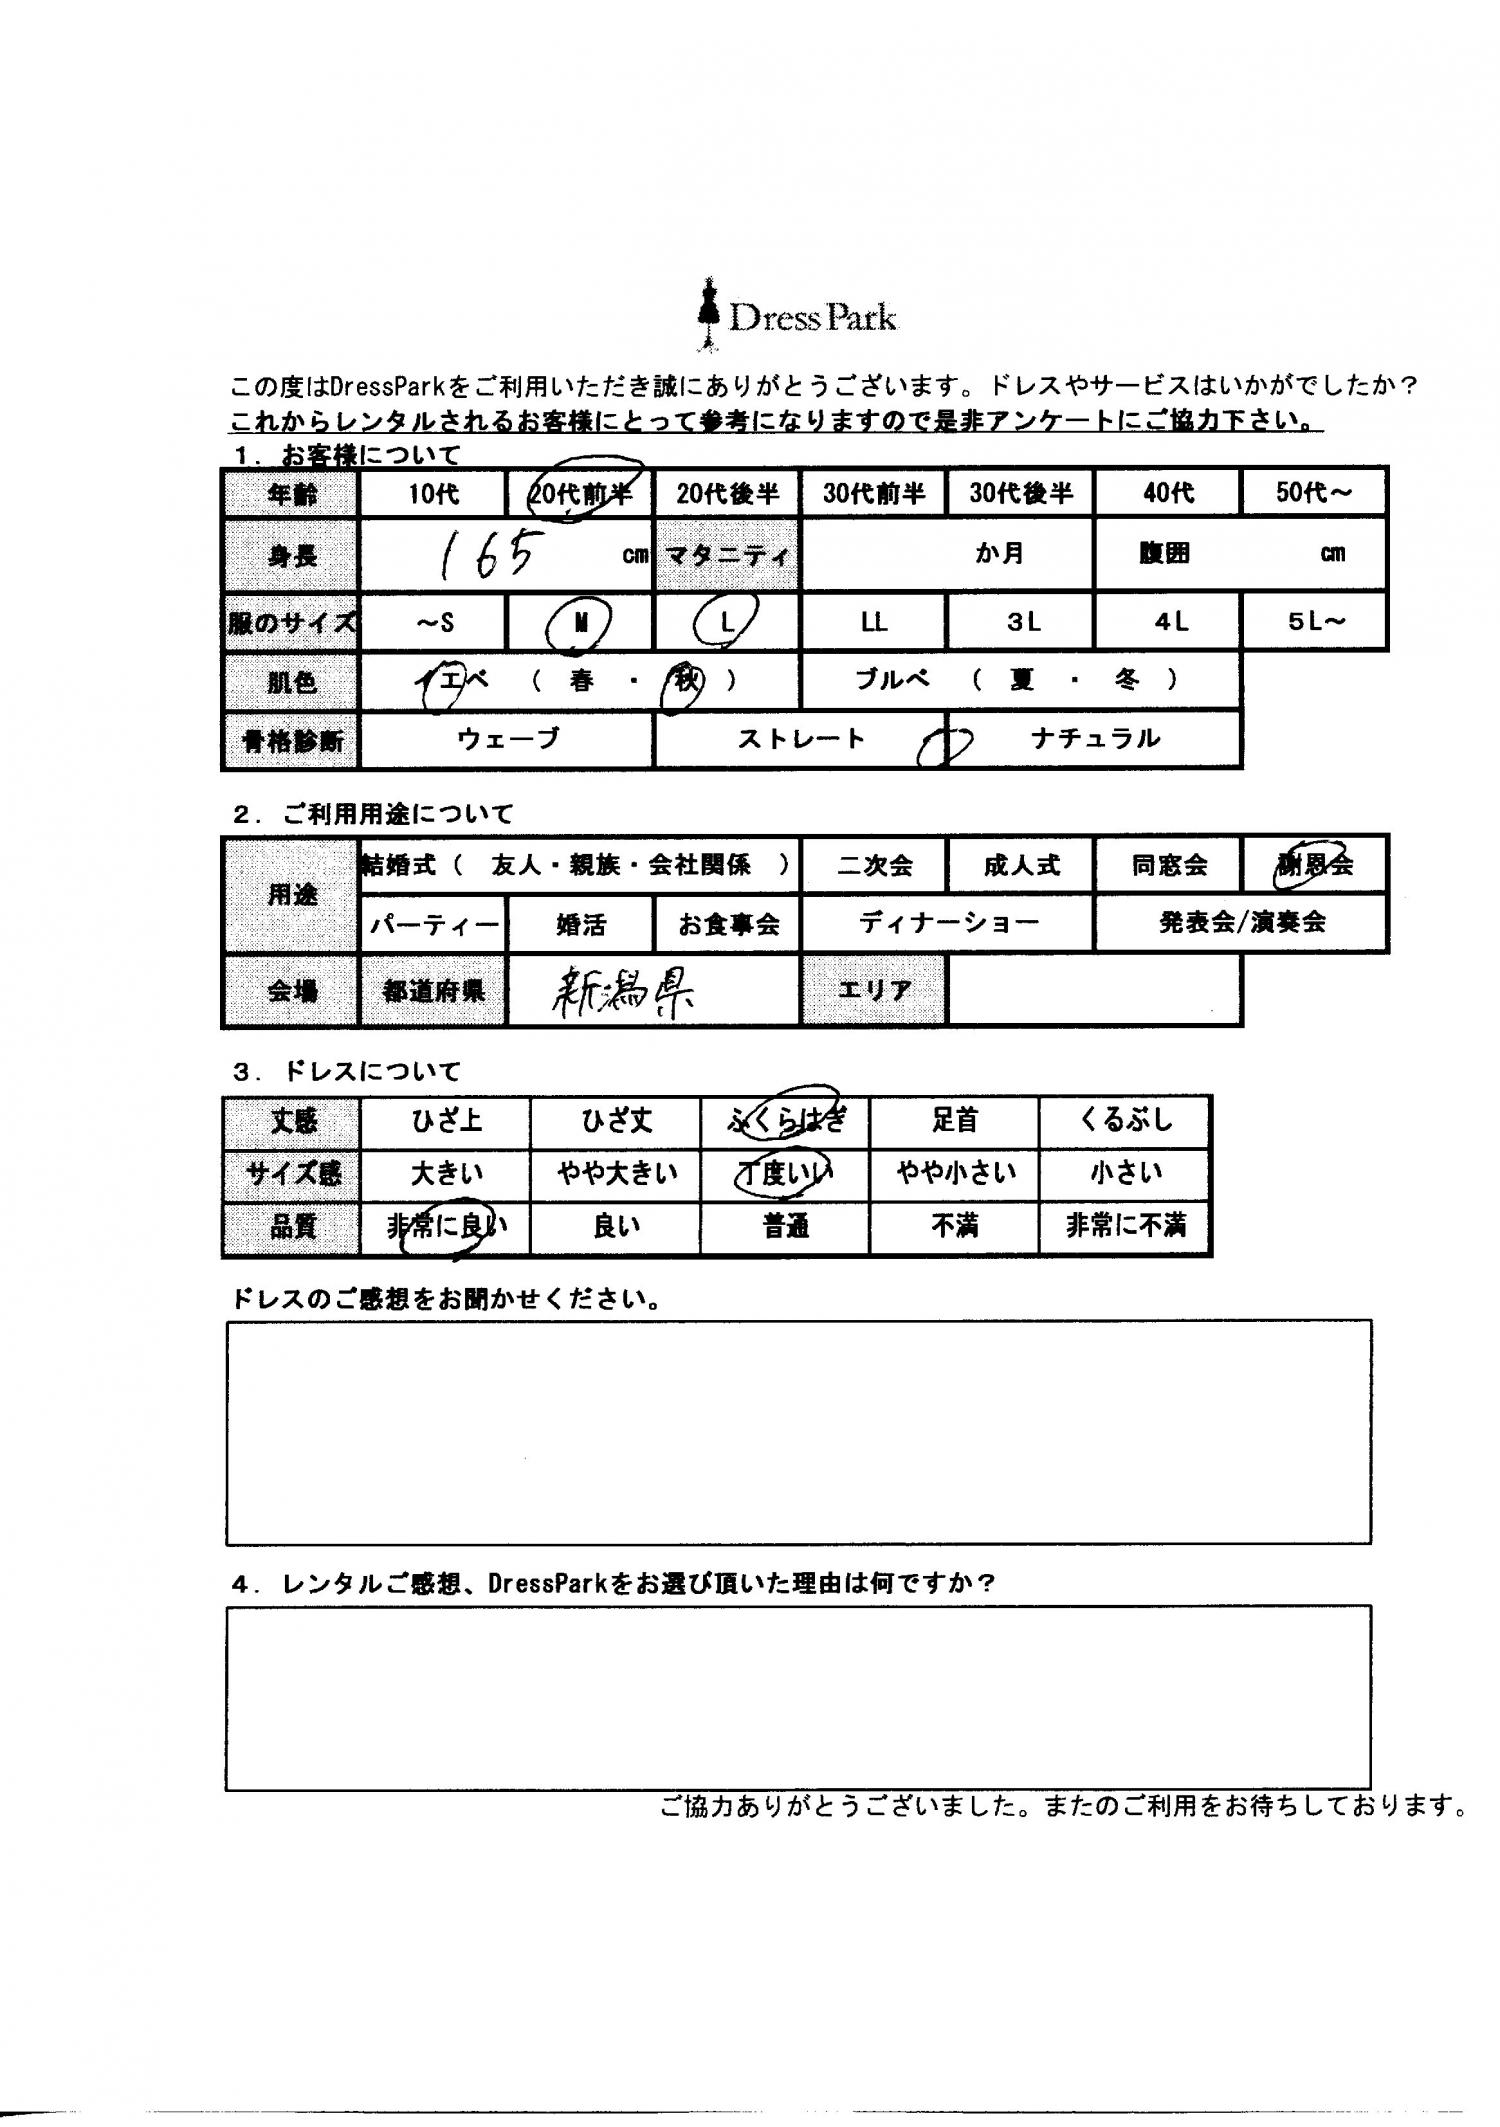 Dress Park
この度はDressParkをご利用いただき誠にありがとうございます。ドレスやサービスはいかがでしたか？
これからレンタルされるお客様にとって参考になりますので是非アンケートにご協力下さい。
1. お客様について
年齢 10代 20代前半 20代後半 30代前半 30代後半 40代 50代～
身長 165 cm マタニティ か月 腹囲 cm
服のサイズ ～S M L LL 3L 4L 5L～
肌色 イエベ （ 春 ・ 秋 ） ブルベ （ 夏 ・ 冬 ）
骨格診断 ウェーブ ストレート ナチュラル
2. ご利用用途について
用途 結婚式（ 友人・親族・会社関係 ） 二次会 成人式 同窓会 謝恩会
パーティー 婚活 お食事会 ディナーショー 発表会/演奏会
会場 都道府県 新潟県 エリア
3. ドレスについて
丈感 ひざ上 ひざ丈 ふくらはぎ 足首 くるぶし
サイズ感 大きい やや大きい 丁度いい やや小さい 小さい
品質 非常に良い 良い 普通 不満 非常に不満
ドレスのご感想をお聞かせください。
4. レンタルご感想、DressParkをお選び頂いた理由は何ですか？
ご協力ありがとうございました。またのご利用をお待ちしております。